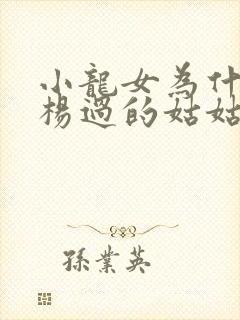 小龍女為什
楊過的姑姑
孫業英